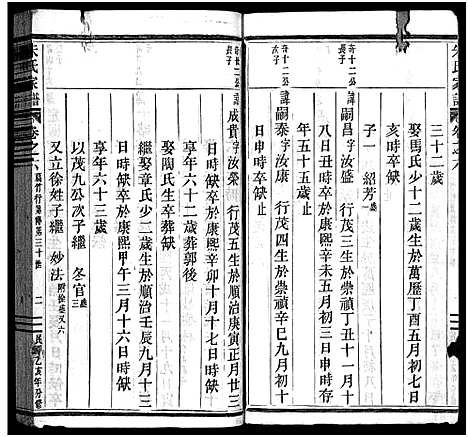 朱氏家譜 卷之六
三十二歲
娶馬氏少十二歲生於萬歷丁酉五月初七日
亥時卒缺
子一 紹芳
奇十二公長子
諱嗣昌 字汝盛 行茂三生於崇禎丁丑十一月十
八日丑時卒於康熙辛未五月初三日申時存
年五十五歲止
奇十二公次子
諱嗣泰 字汝康 行茂四生於崇禎辛巳九月初十
日申時卒缺
諱成貴 字汝榮 行茂五生於順治庚寅正月廿三
日時缺卒於康熙辛卯十月十七日時缺
享年六十二歲葬郭後
娶陶氏生卒葬缺
繼娶章氏少二歲生於順治壬辰九月十三
日時缺卒於康熙甲午三月十六日時缺
享年六十三歲
以茂九公次子繼 冬官
又立徐姓子繼 妙法
朱氏家譜
卷之六
第三十世
二